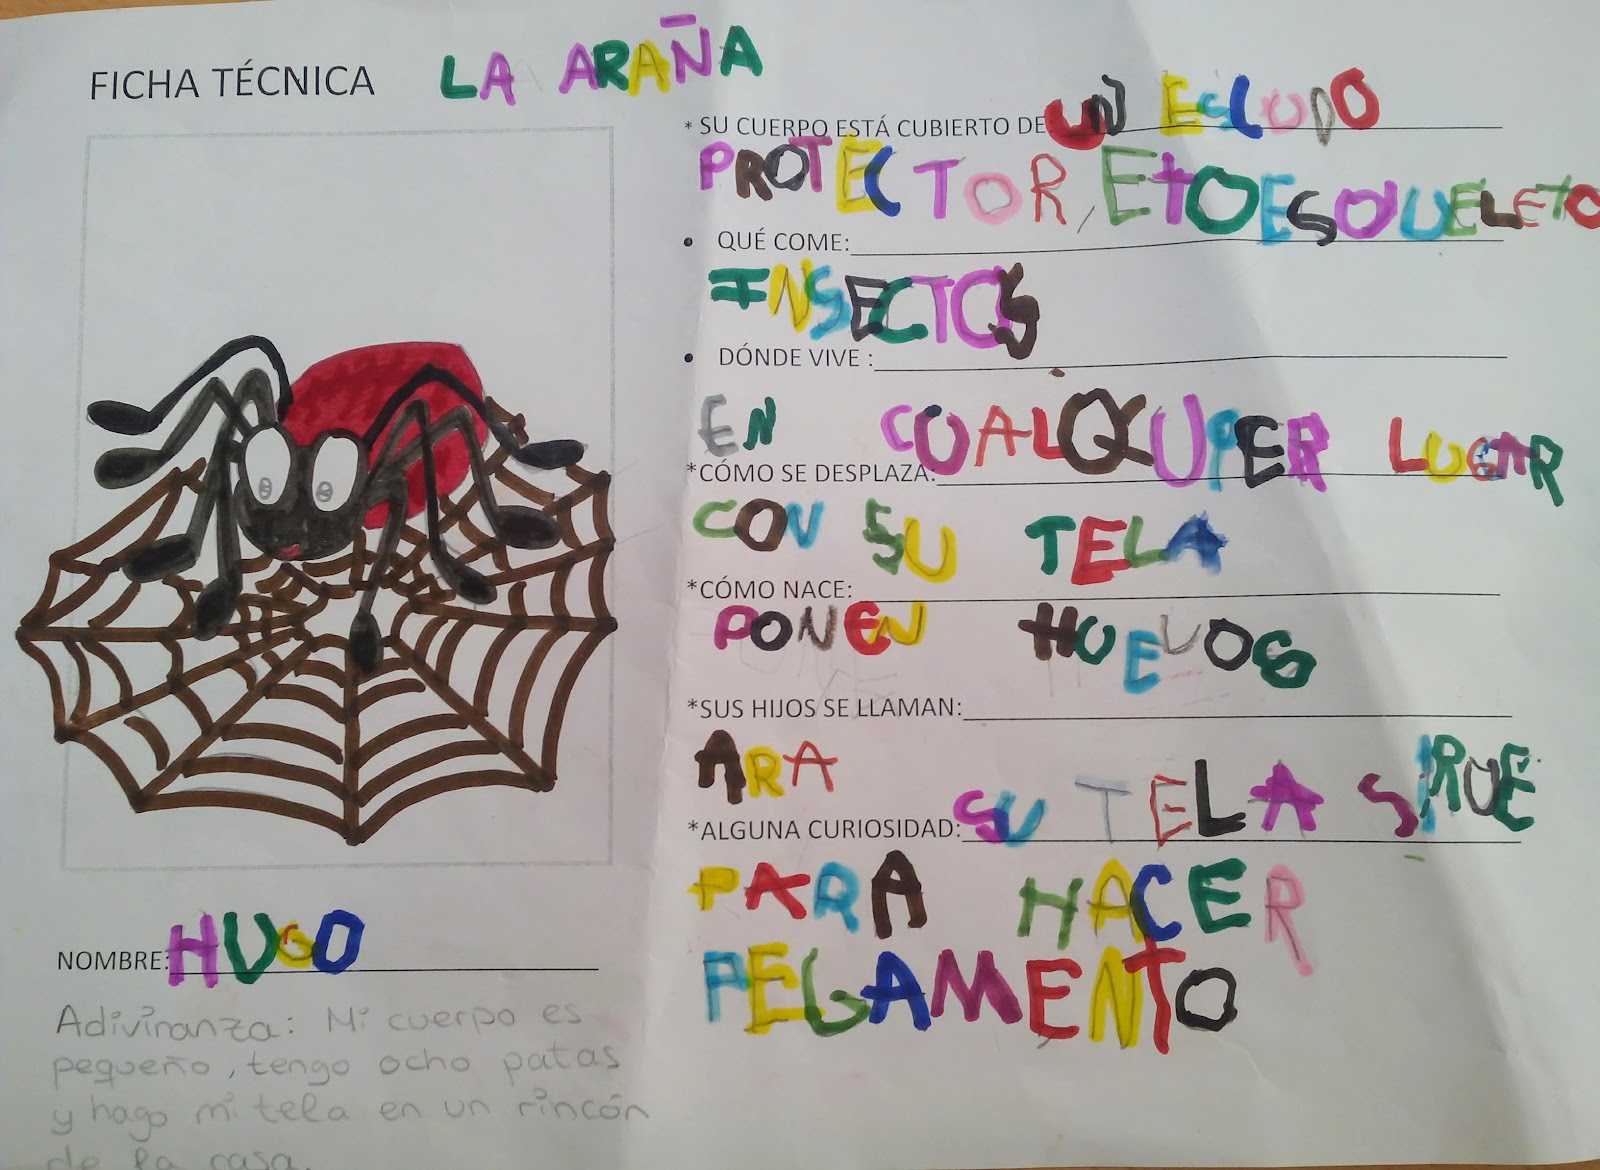 FICHA TÉCNICA LA ARAÑA
* SU CUERPO ESTÁ CUBIERTO DE UN ESCUDO
PROTECTOR, ETOESQUELETO
• QUÉ COME:
INSECTOS
• DÓNDE VIVE :
EN CUALQUPER LUGAR
*CÓMO SE DESPLAZA:
CON SU TELA
*CÓMO NACE:
PONEN HUEVOS
*SUS HIJOS SE LLAMAN:
ARA
*ALGUNA CURIOSIDAD: SU TELA SIRVE
PARA HACER
PEGAMENTO
NOMBRE: HUGO
Adivinanza: Mi cuerpo es
pequeño, tengo ocho patas
y hago mi tela en un rincón
de la casa.